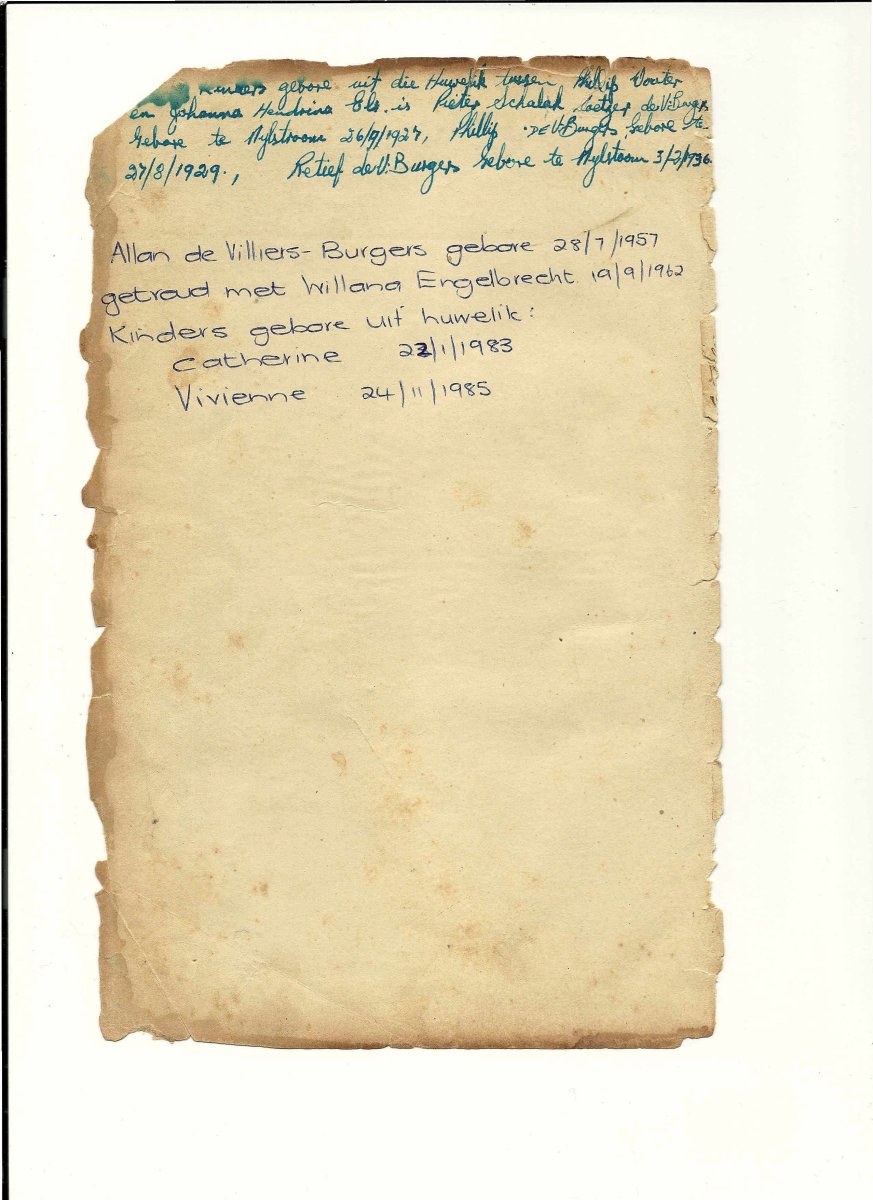 Kinders gebore uit die Huwelik tussen Phillip Wouter
en Johanna Hendrina Els. is Pieter Schalak Coetzer de V: Burgers
Gebore te Nylstroom 26/9/1927, Phillip DE V: Burgers Gebore te
27/8/1929., Retief de V: Burgers Gebore te Nylstoom 3/2/1936.
Allan de Villiers-Burgers gebore 28/7/1957
getroud met Willana Engelbrecht 19/9/1962
Kinders gebore uit huwelik:
Catherine 22/1/1983
Vivienne 24/11/1985